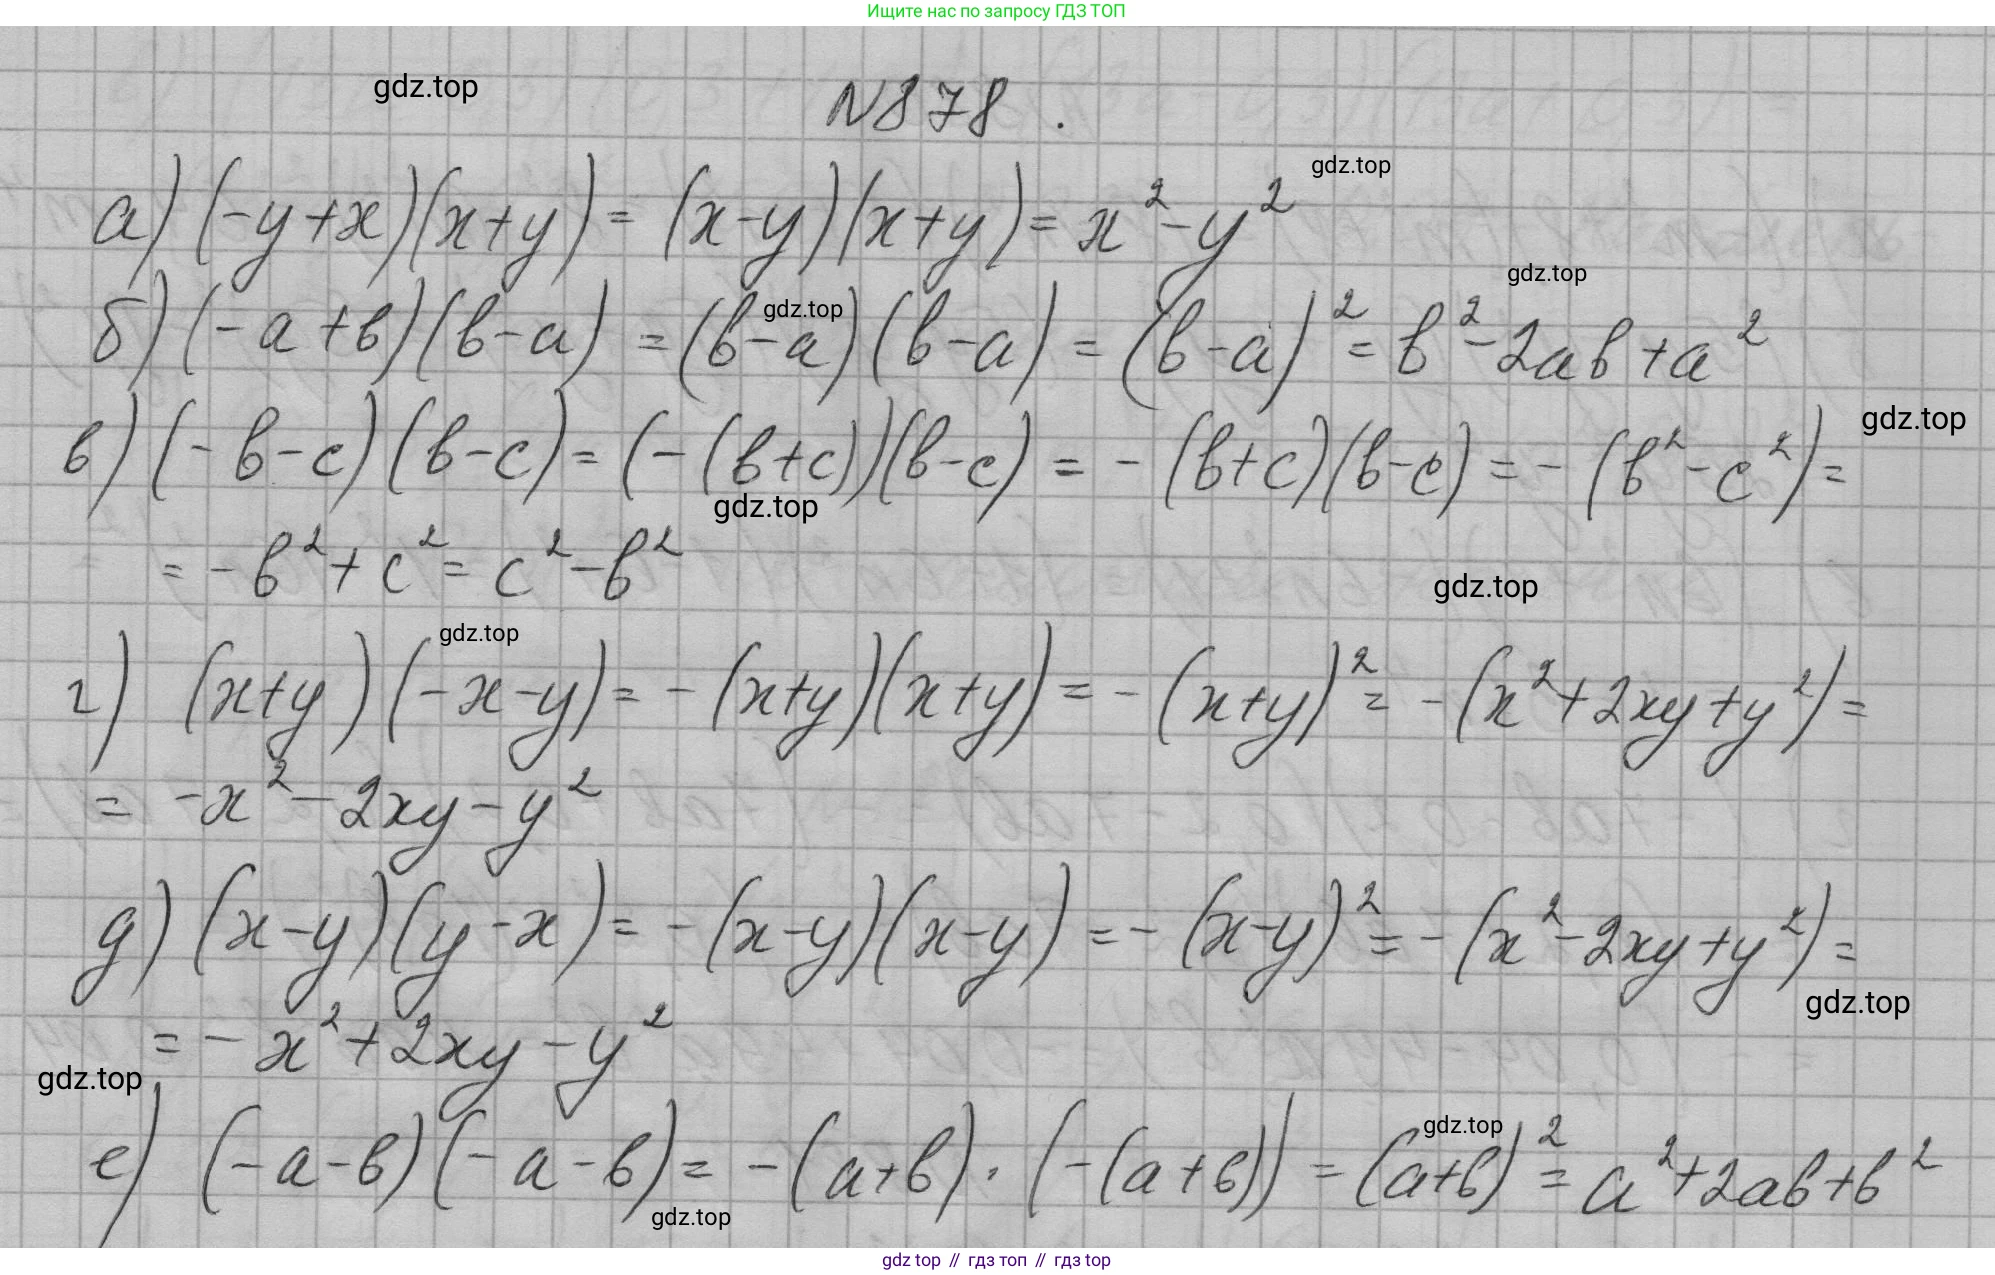 Ищите нас по запросу ГДЗ ТОП
gdz.top
N878.
gdz.top
а) (-y+x)(x+y) = (x-y)(x+y) = x²-y²
gdz.top
gdz.top
б) (-a+b)(b-a) = (b-a)(b-a) = (b-a)² = b²-2ab+a²
gdz.top
в) (-b-c)(b-c) = (-(b+c))(b-c) = -(b+c)(b-c) = -(b²-c²) =
gdz.top
= -b²+c² = c²-b²
gdz.top
gdz.top
г) (x+y)(-x-y) = -(x+y)(x+y) = -(x+y)² = -(x²+2xy+y²) =
= -x²-2xy-y²
д) (x-y)(y-x) = -(x-y)(x-y) = -(x-y)² = -(x²-2xy+y²) =
gdz.top
= -x²+2xy-y²
gdz.top
gdz.top
е) (-a-b)(-a-b) = -(a+b)·(-(a+b)) = (a+b)² = a²+2ab+b²
gdz.top
gdz top // гдз топ // гдз top